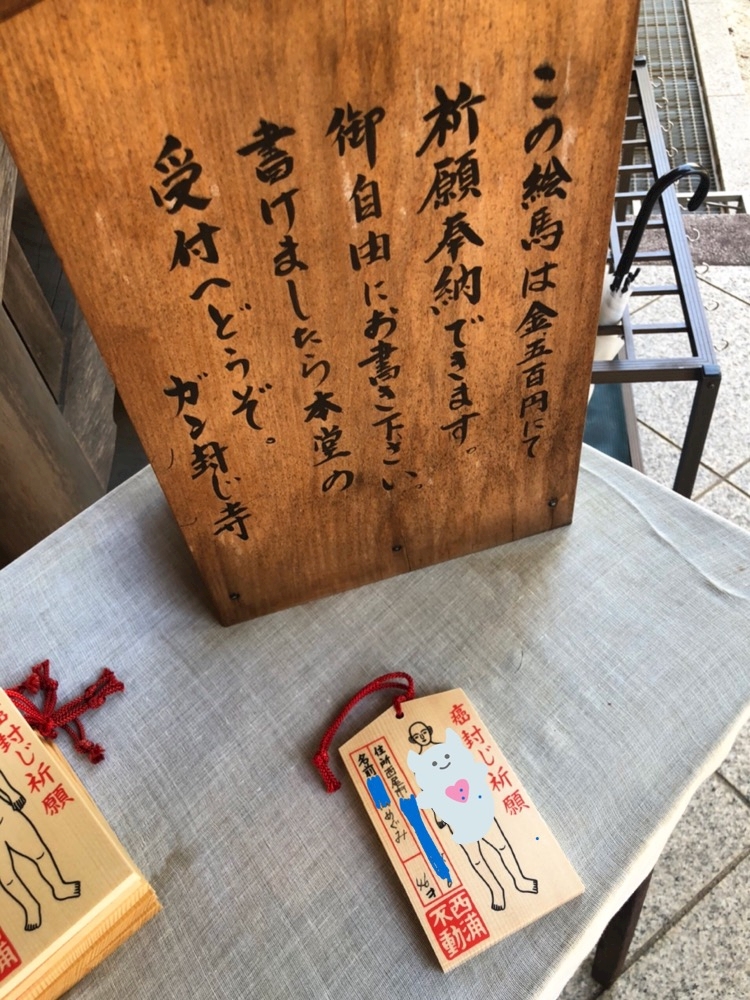 この絵馬は金五百円にて
祈願奉納できます。
御自由にお書き下さい。
書けましたら本堂の
受付へどうぞ。
ガン封じ寺
癌封じ祈願
住所 西尾市
名前 めぐみ 46才
西浦
不動
封じ祈願